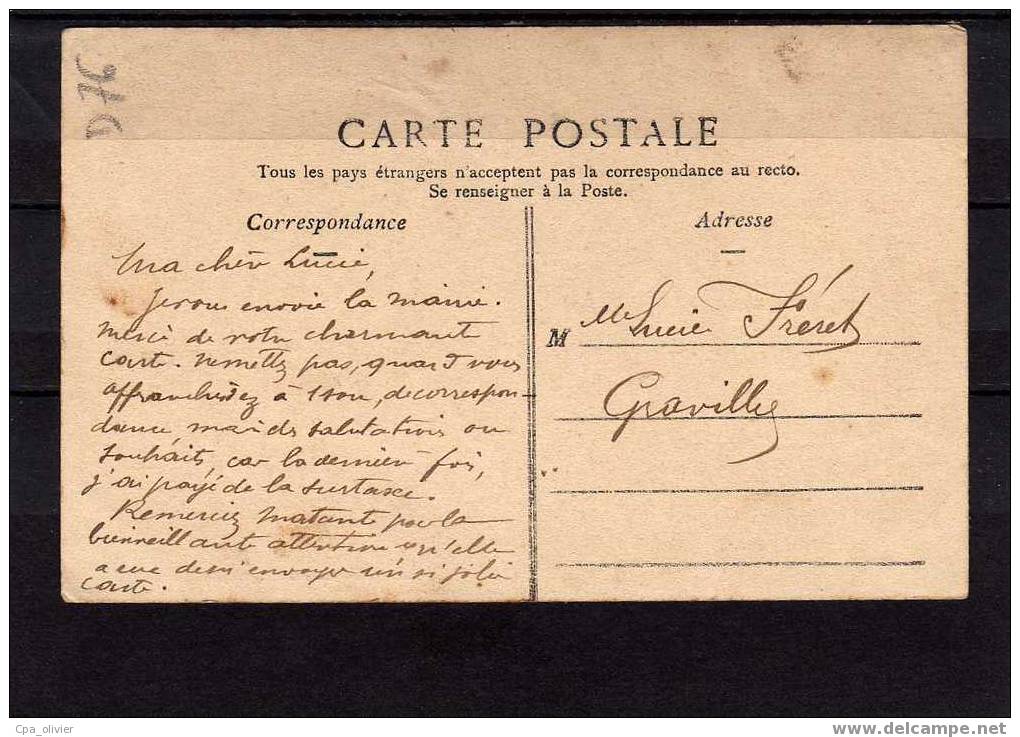 D76
CARTE POSTALE
Tous les pays étrangers n'acceptent pas la correspondance au recto.
Se renseigner à la Poste.
Correspondance
Ma chère Lucie,
Je vous envoie la mairie.
Merci de votre charmante
carte. Ne mettez pas, quand vous
affranchissez à 1 sou, de correspon-
dance mais des salutations ou
souhaits, car la dernière fois,
j'ai payé de la surtaxe.
Remerciez ma tante pour la
bienveillante attention qu'elle
a eue de m'envoyer une si jolie
carte.
Adresse
M lle Lucie Fréret
Graville
Cpa_olivier
www.delcampe.net